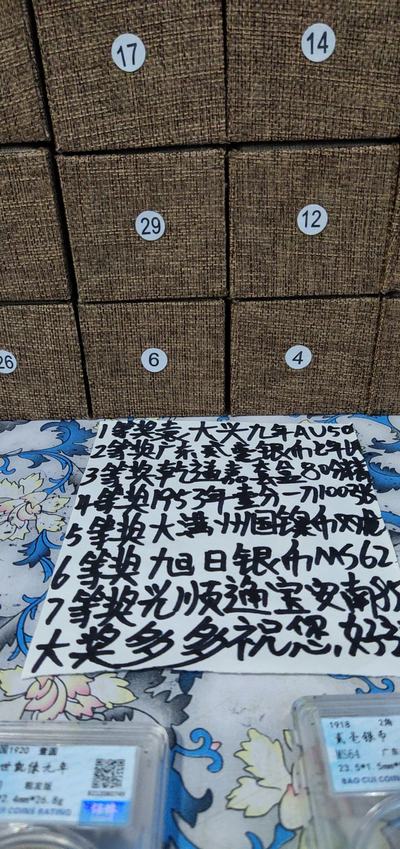 17
14
29
12
26
6
4
1等奖袁大头九年AU50
2等奖广东贰毫银币七年
3等奖乾通嘉套盒80
4等奖1953年壹分一刀100张
5等奖大满州国镍币
6等奖旭日银币MS62
7等奖光顺通宝安南85
大奖多多祝您,好
国1920 壹圆
世凯像九年
精发版
.4mm*26.8g
COINS RATING
1918 2角
贰毫银币
MS64 广东
23.5*1.5mm*
BAO CUI COINS